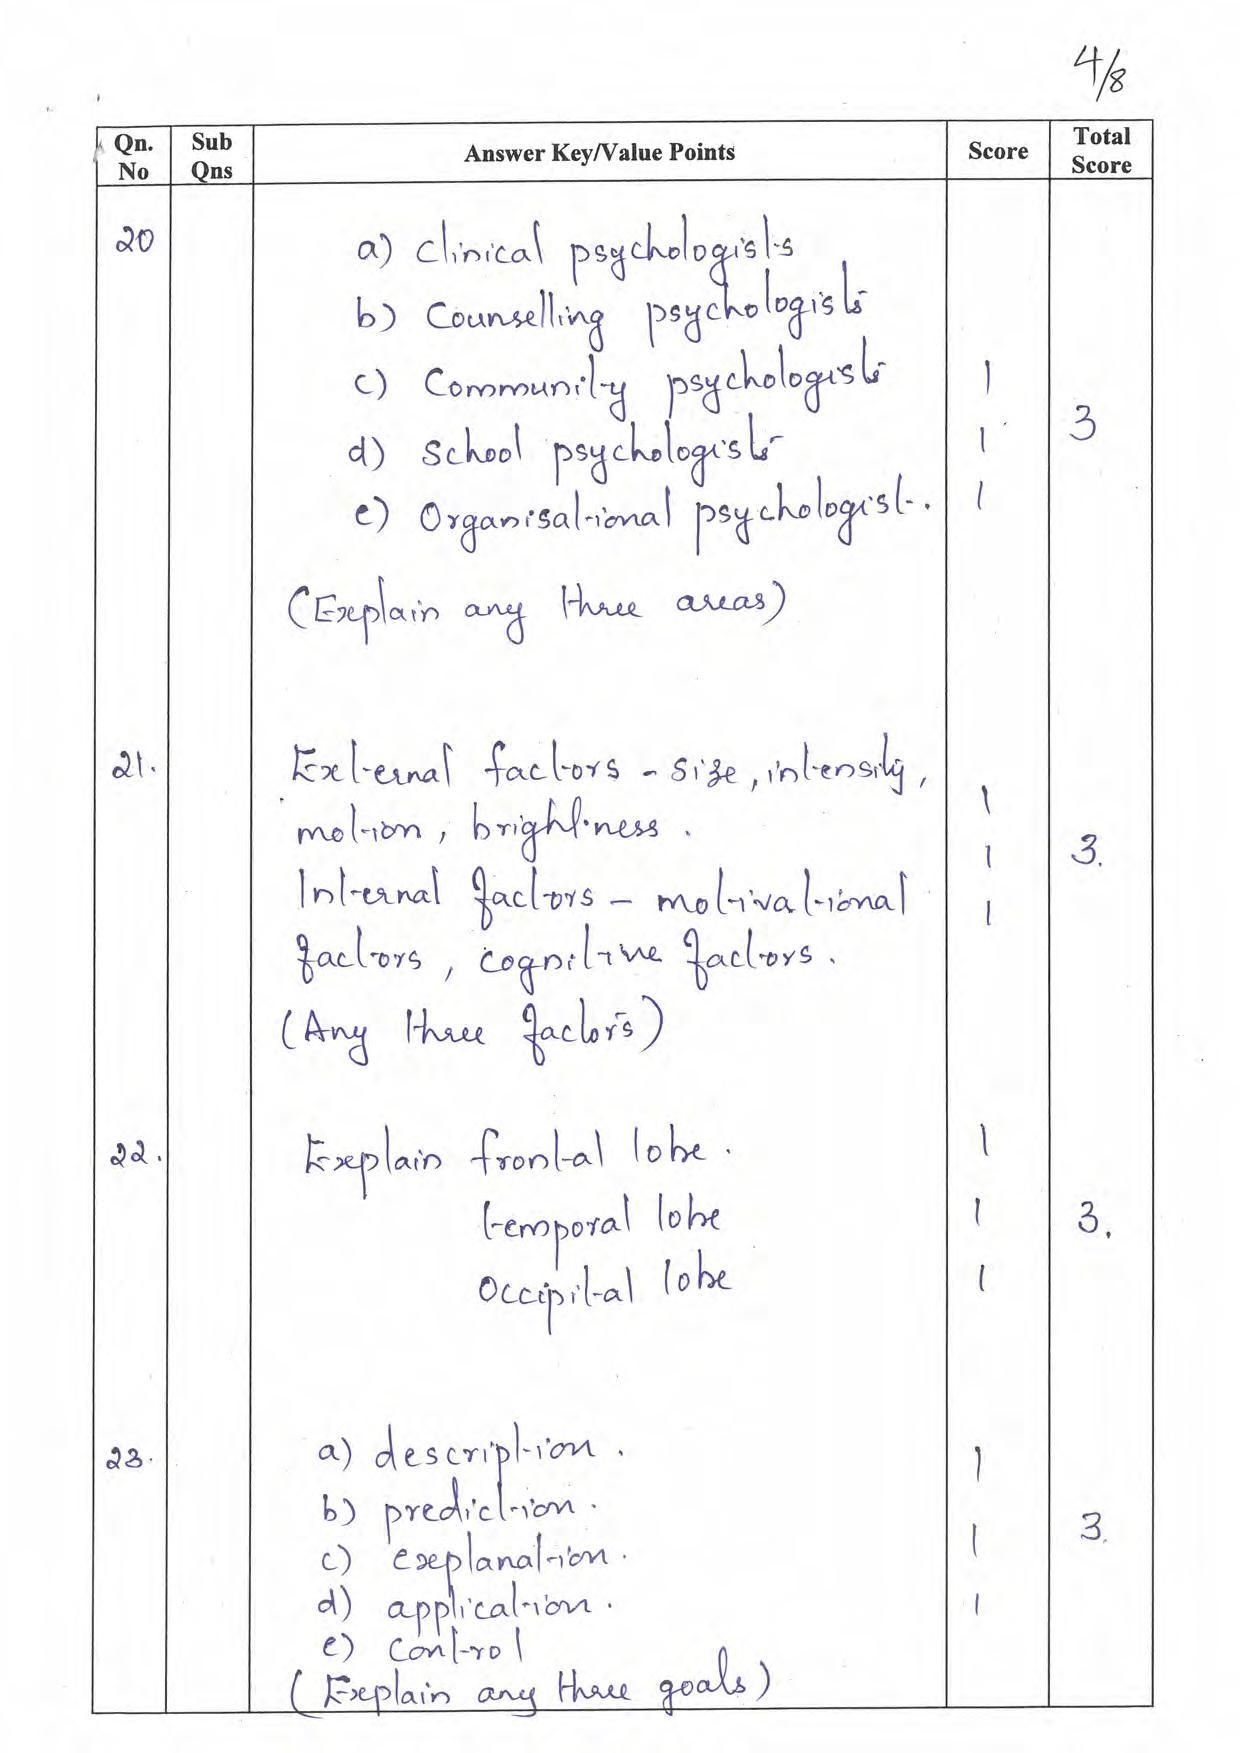 4/8
Qn. No	Sub Qns	Answer Key/Value Points	Score	Total Score
20	a) Clinical psychologists
b) Counselling psychologists
c) Community psychologists	1
d) School psychologists	1	3
e) Organisational psychologist.	1
(Explain any three areas)
21.	External factors - size, intensity,
motion, brightness.	1
Internal factors - motivational	1	3.
factors, cognitive factors.	1
(Any three factors)
22.	Explain frontal lobe.	1
temporal lobe	1	3.
Occipital lobe	1
23.	a) description.	1
b) prediction.
c) explanation.	1	3.
d) application.	1
e) control
(Explain any three goals)